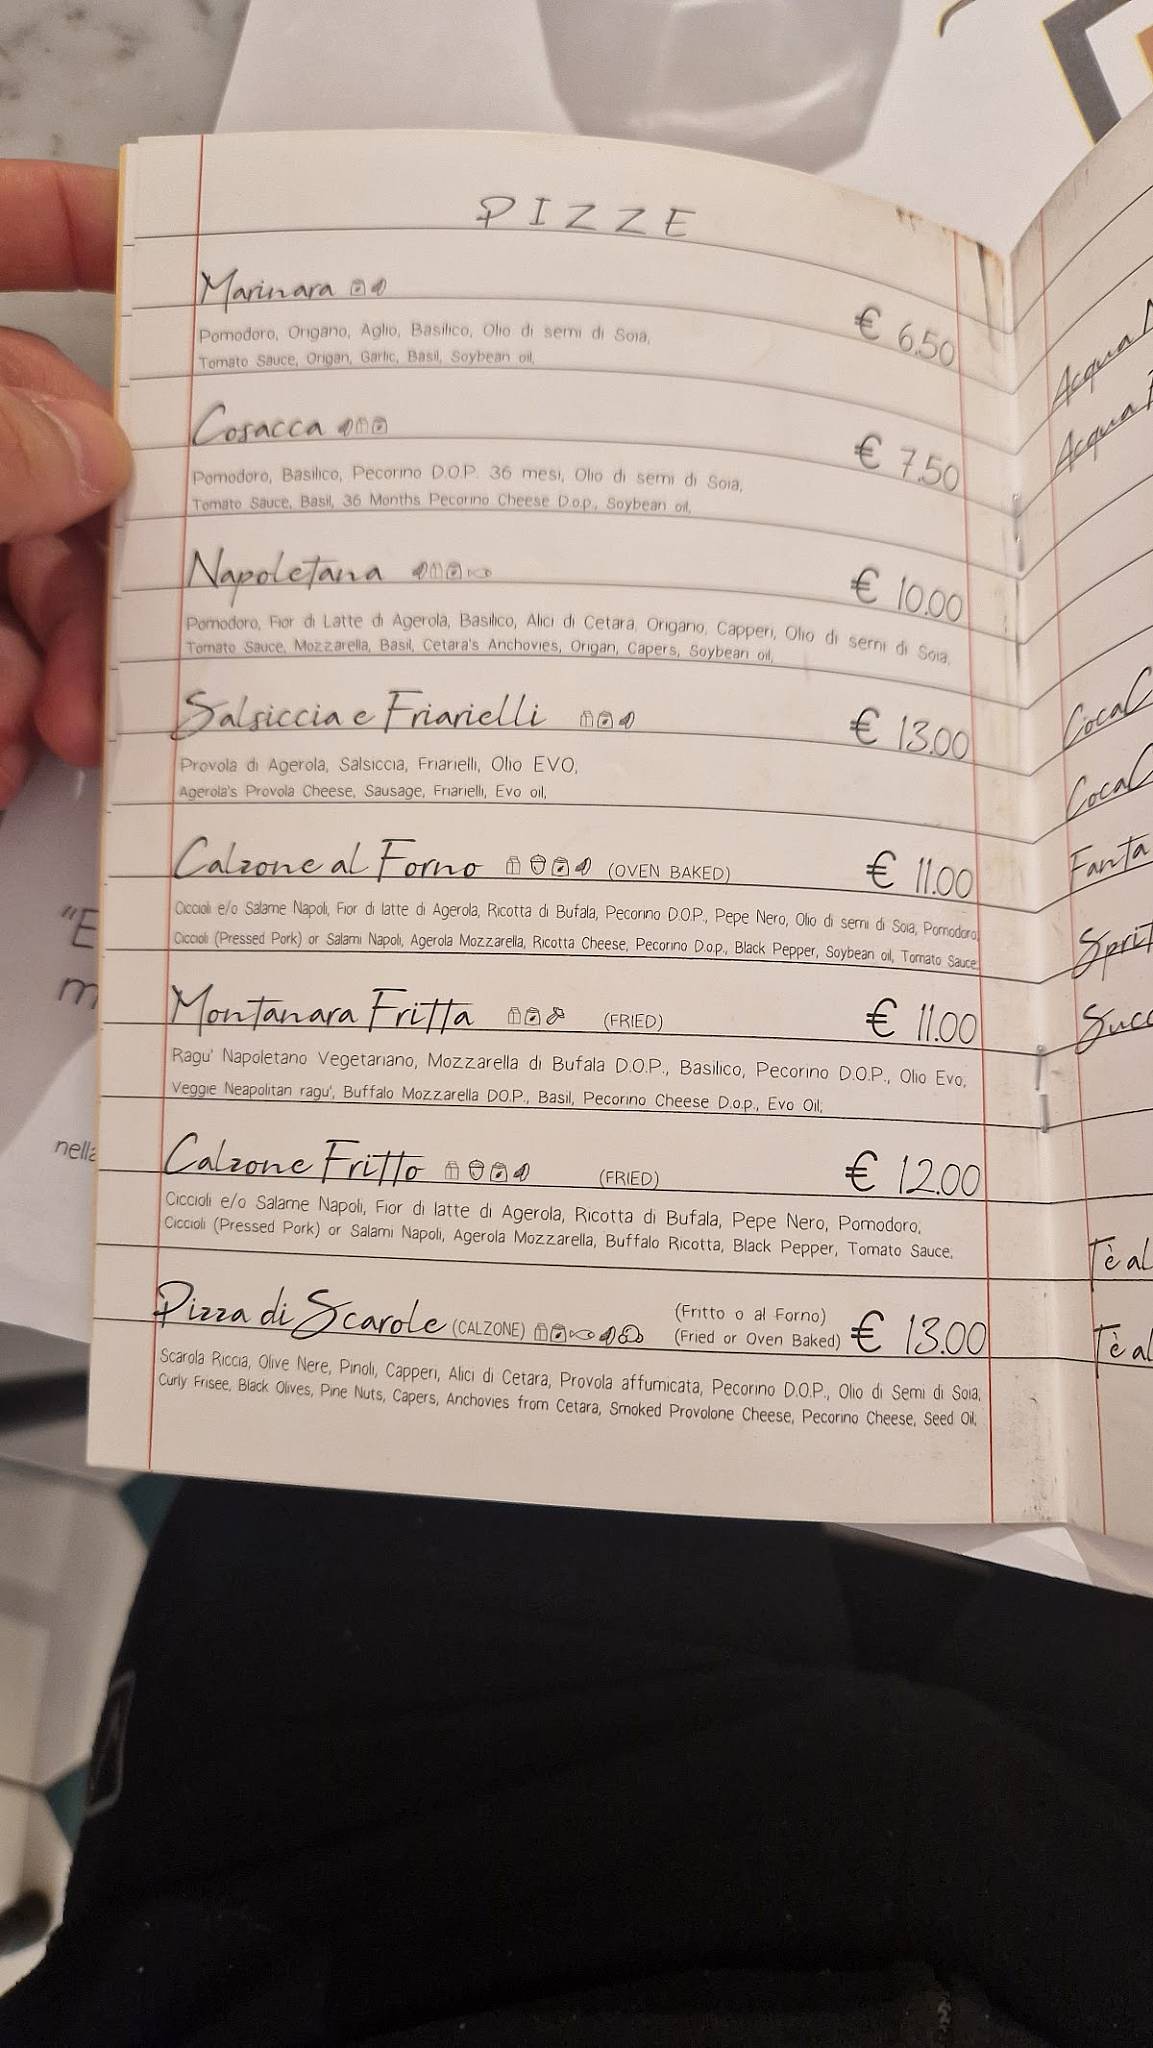 PIZZE
Marinara
€ 6.50
Pomodoro, Origano, Aglio, Basilico, Olio di semi di Soia,
Tomato Sauce, Origan, Garlic, Basil, Soybean oil,
Cosacca
€ 7.50
Pomodoro, Basilico, Pecorino D.O.P. 36 mesi, Olio di semi di Soia,
Tomato Sauce, Basil, 36 Months Pecorino Cheese D.o.p., Soybean oil,
Napoletana
€ 10.00
Pomodoro, Fior di Latte di Agerola, Basilico, Alici di Cetara, Origano, Capperi, Olio di semi di Soia,
Tomato Sauce, Mozzarella, Basil, Cetara's Anchovies, Origan, Capers, Soybean oil,
Salsiccia e Friarielli
€ 13.00
Provola di Agerola, Salsiccia, Friarielli, Olio EVO,
Agerola's Provola Cheese, Sausage, Friarielli, Evo oil,
Calzone al Forno (OVEN BAKED) € 11.00
Ciccioli e/o Salame Napoli, Fior di latte di Agerola, Ricotta di Bufala, Pecorino D.O.P., Pepe Nero, Olio di semi di Soia, Pomodoro,
Ciccioli (Pressed Pork) or Salami Napoli, Agerola Mozzarella, Ricotta Cheese, Pecorino D.o.p., Black Pepper, Soybean oil, Tomato Sauce,
Montanara Fritta (FRIED) € 11.00
Ragu' Napoletano Vegetariano, Mozzarella di Bufala D.O.P., Basilico, Pecorino D.O.P., Olio Evo,
Veggie Neapolitan ragu', Buffalo Mozzarella D.O.P., Basil, Pecorino Cheese D.o.p., Evo Oil;
Calzone Fritto (FRIED) € 12.00
Ciccioli e/o Salame Napoli, Fior di latte di Agerola, Ricotta di Bufala, Pepe Nero, Pomodoro,
Ciccioli (Pressed Pork) or Salami Napoli, Agerola Mozzarella, Buffalo Ricotta, Black Pepper, Tomato Sauce,
Pizza di Scarole (CALZONE) (Fritto o al Forno) € 13.00
(Fried or Oven Baked)
Scarola Riccia, Olive Nere, Pinoli, Capperi, Alici di Cetara, Provola affumicata, Pecorino D.O.P., Olio di Semi di Soia,
Curly Frisee, Black Olives, Pine Nuts, Capers, Anchovies from Cetara, Smoked Provolone Cheese, Pecorino Cheese, Seed Oil,
Acqua
Acqua
Coca C
Coca C
Fanta
Sprit
Succ
Tè al
Tè al
"E
m
nella